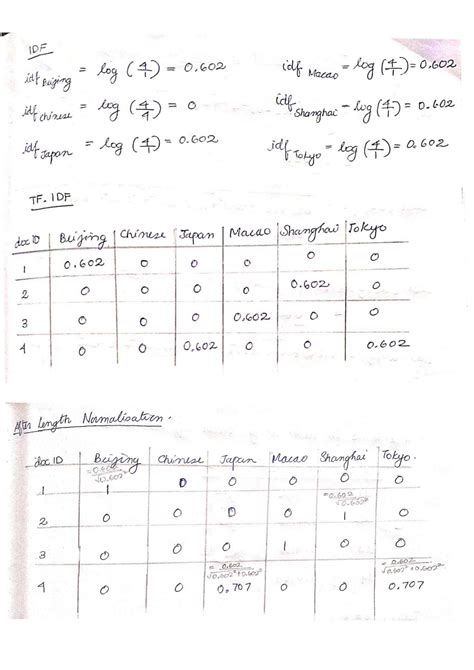 IDF
idf Beijing = log (4/1) = 0.602 idf Macao = log (4/1) = 0.602
idf chinese = log (4/4) = 0 idf Shanghai = log (4/1) = 0.602
idf Japan = log (4/1) = 0.602 idf Tokyo = log (4/1) = 0.602
TF. IDF
doc ID Beijing Chinese Japan Macao Shanghai Tokyo
1 0.602 0 0 0 0 0
2 0 0 0 0 0.602 0
3 0 0 0 0.602 0 0
4 0 0 0.602 0 0 0.602
After Length Normalisation.
doc ID Beijing Chinese Japan Macao Shanghai Tokyo.
= 0.602/√0.602²
1 1 0 0 0 0 0
= 0.602/√0.602²
2 0 0 0 0 1 0
3 0 0 0 1 0 0
= 0.602/√0.602²+0.602² = 0.602/√0.602²+0.602²
4 0 0 0.707 0 0 0.707